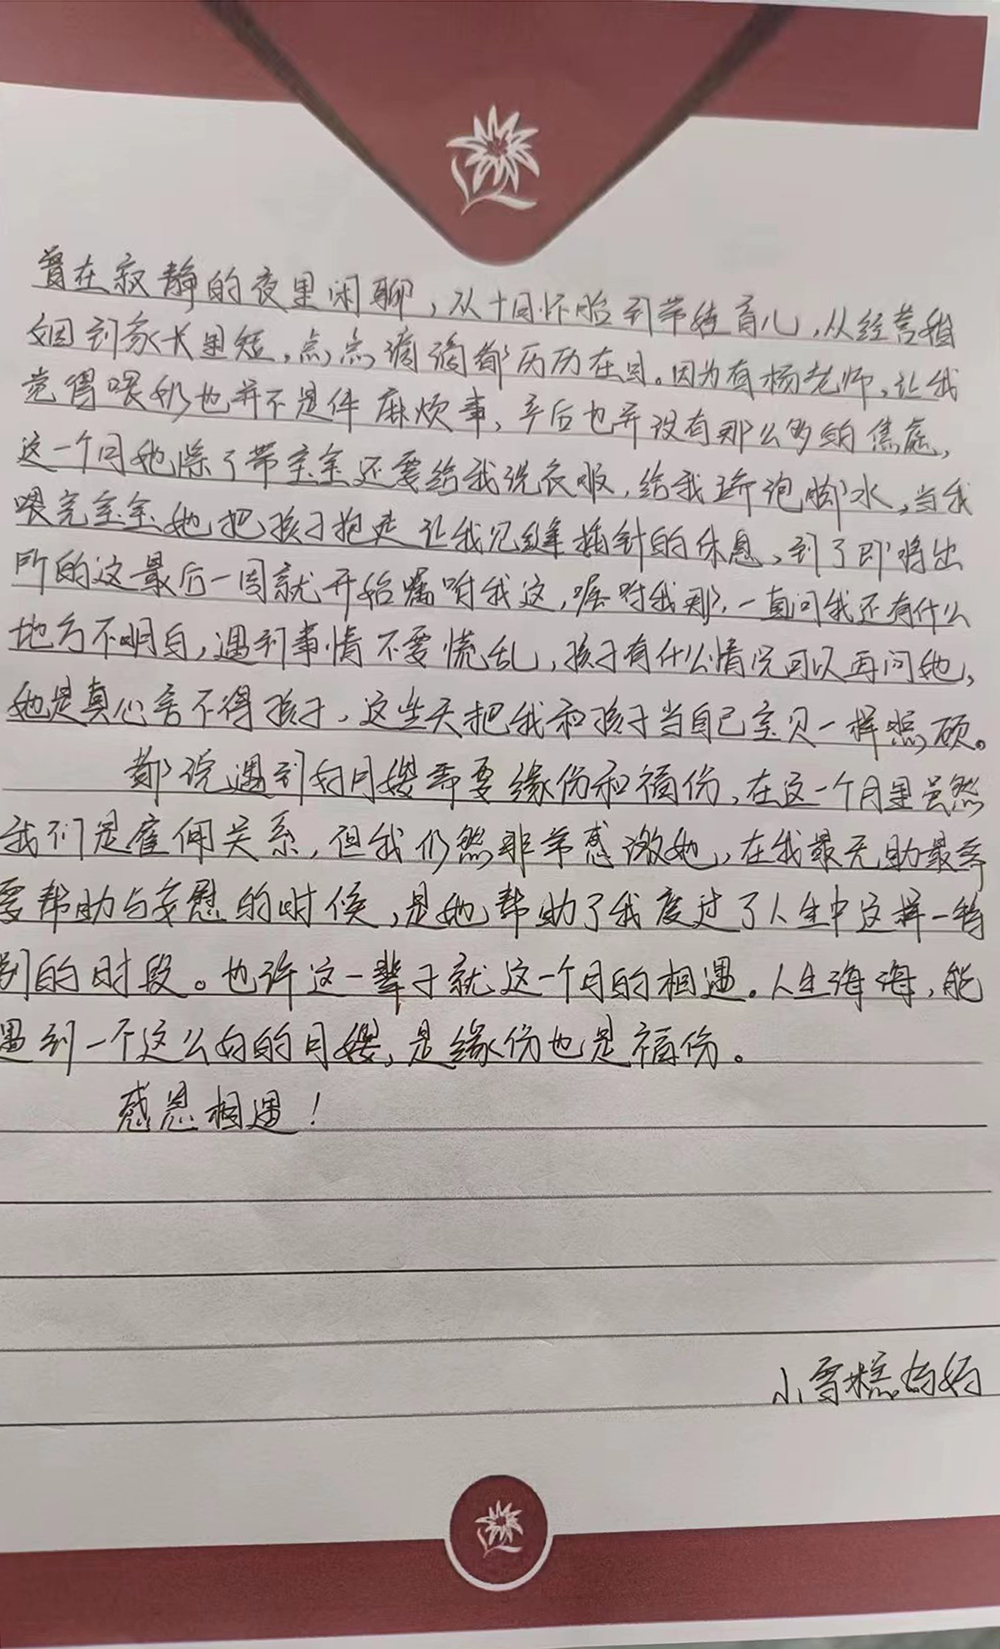 曾在寂静的夜里闲聊，从十月怀胎到带娃育儿，从经营婚
姻到家长里短，点点滴滴都历历在目。因为有杨老师，让我
觉得喂奶也并不是件麻烦事，产后也并没有那么多的焦虑，
这一个月她除了带宝宝还要给我洗衣服，给我打泡脚水，当我
喂完宝宝她把孩子抱走让我见缝插针的休息，到了即将出
所的这最后一周就开始嘱咐我这，嘱咐我那，一直问我还有什么
地方不明白，遇到事情不要慌乱，孩子有什么情况可以再问她，
她是真心舍不得孩子，这些天把我和孩子当自己宝贝一样照顾。
都说遇到好月嫂需要缘份和福份，在这一个月里虽然
我们是雇佣关系，但我仍然非常感激她，在我最无助最需
要帮助与安慰的时候，是她帮助了我度过了人生中这样一特
别的时段。也许这一辈子就这一个月的相遇。人生海海，能
遇到一个这么好的月嫂，是缘份也是福份。
感恩相遇！
小雪糕妈妈